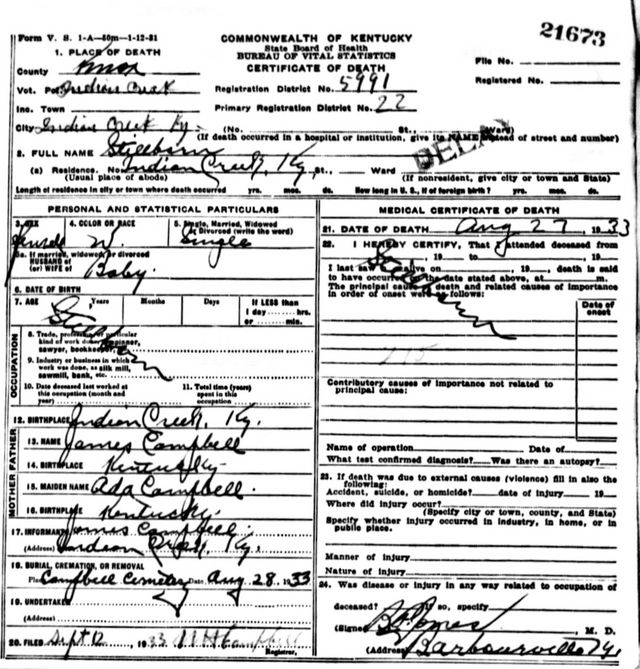 Form V. S. 1-A—50m—1-12-31
21673
COMMONWEALTH OF KENTUCKY
State Board of Health
BUREAU OF VITAL STATISTICS
CERTIFICATE OF DEATH
1. PLACE OF DEATH
County Knox
Vot. Pct. Indian Creek
Inc. Town
Registration District No. 5991
Primary Registration District No. 22
File No.
Registered No.
City Indian Creek Ky. (No. St., Ward)
(If death occurred in a hospital or institution, give its NAME instead of street and number)
DELAY
2. FULL NAME Stillborn
(a) Residence. No. Indian Creek, Ky. St., Ward
(Usual place of abode) (If nonresident, give city or town and State)
Length of residence in city or town where death occurred yrs. mos. ds. How long in U. S., if of foreign birth? yrs. mos. ds.
PERSONAL AND STATISTICAL PARTICULARS
3. SEX
4. COLOR OR RACE W.
5. Single, Married, Widowed or Divorced (write the word) Single
5a. If married, widowed or divorced
HUSBAND of
(or) WIFE of Baby.
6. DATE OF BIRTH
7. AGE Years Months Days If LESS than
1 day hrs.
or min.
Stillborn
OCCUPATION
8. Trade, profession or particular
kind of work done, spinner,
sawyer, bookkeeper,
9. Industry or business in which
work was done, as silk mill,
sawmill, bank, etc.
10. Date deceased last worked at
this occupation (month and
year)
11. Total time (years)
spent in this
occupation
12. BIRTHPLACE Indian Creek, Ky.
MOTHER FATHER
13. NAME James Campbell
14. BIRTHPLACE Kentucky
15. MAIDEN NAME Ada Campbell.
16. BIRTHPLACE Kentucky.
17. INFORMANT James Campbell
(Address) Indian Creek, Ky.
18. BURIAL, CREMATION, OR REMOVAL
Place Campbell Cemetery Date Aug 28, 1933
19. UNDERTAKER
(Address)
20. FILED Sept 12 1933 Campbell
Registrar.
MEDICAL CERTIFICATE OF DEATH
21. DATE OF DEATH Aug 27, 1933
22. I HEREBY CERTIFY, That I attended deceased from
19 to 19
I last saw alive on 19 death is said
to have occurred on the date stated above, at m.
The principal cause of death and related causes of importance
in order of onset were as follows:
Stillborn
Date of
onset
Contributory causes of importance not related to
principal cause:
Name of operation Date of
What test confirmed diagnosis? Was there an autopsy?
23. If death was due to external causes (violence) fill in also the
following:
Accident, suicide, or homicide? date of injury 19
Where did injury occur?
(Specify city or town, county, and State)
Specify whether injury occurred in industry, in home, or in
public place.
Manner of injury
Nature of injury
24. Was disease or injury in any way related to occupation of
deceased? If so, specify
(Signed) M. D.
(Address) Barbourville Ky.